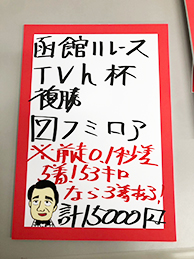 函館11レース
TVh杯
複勝
⑦フミロア
※前走0.1秒差
5着!53キロ
なら3着ある!
計15000円